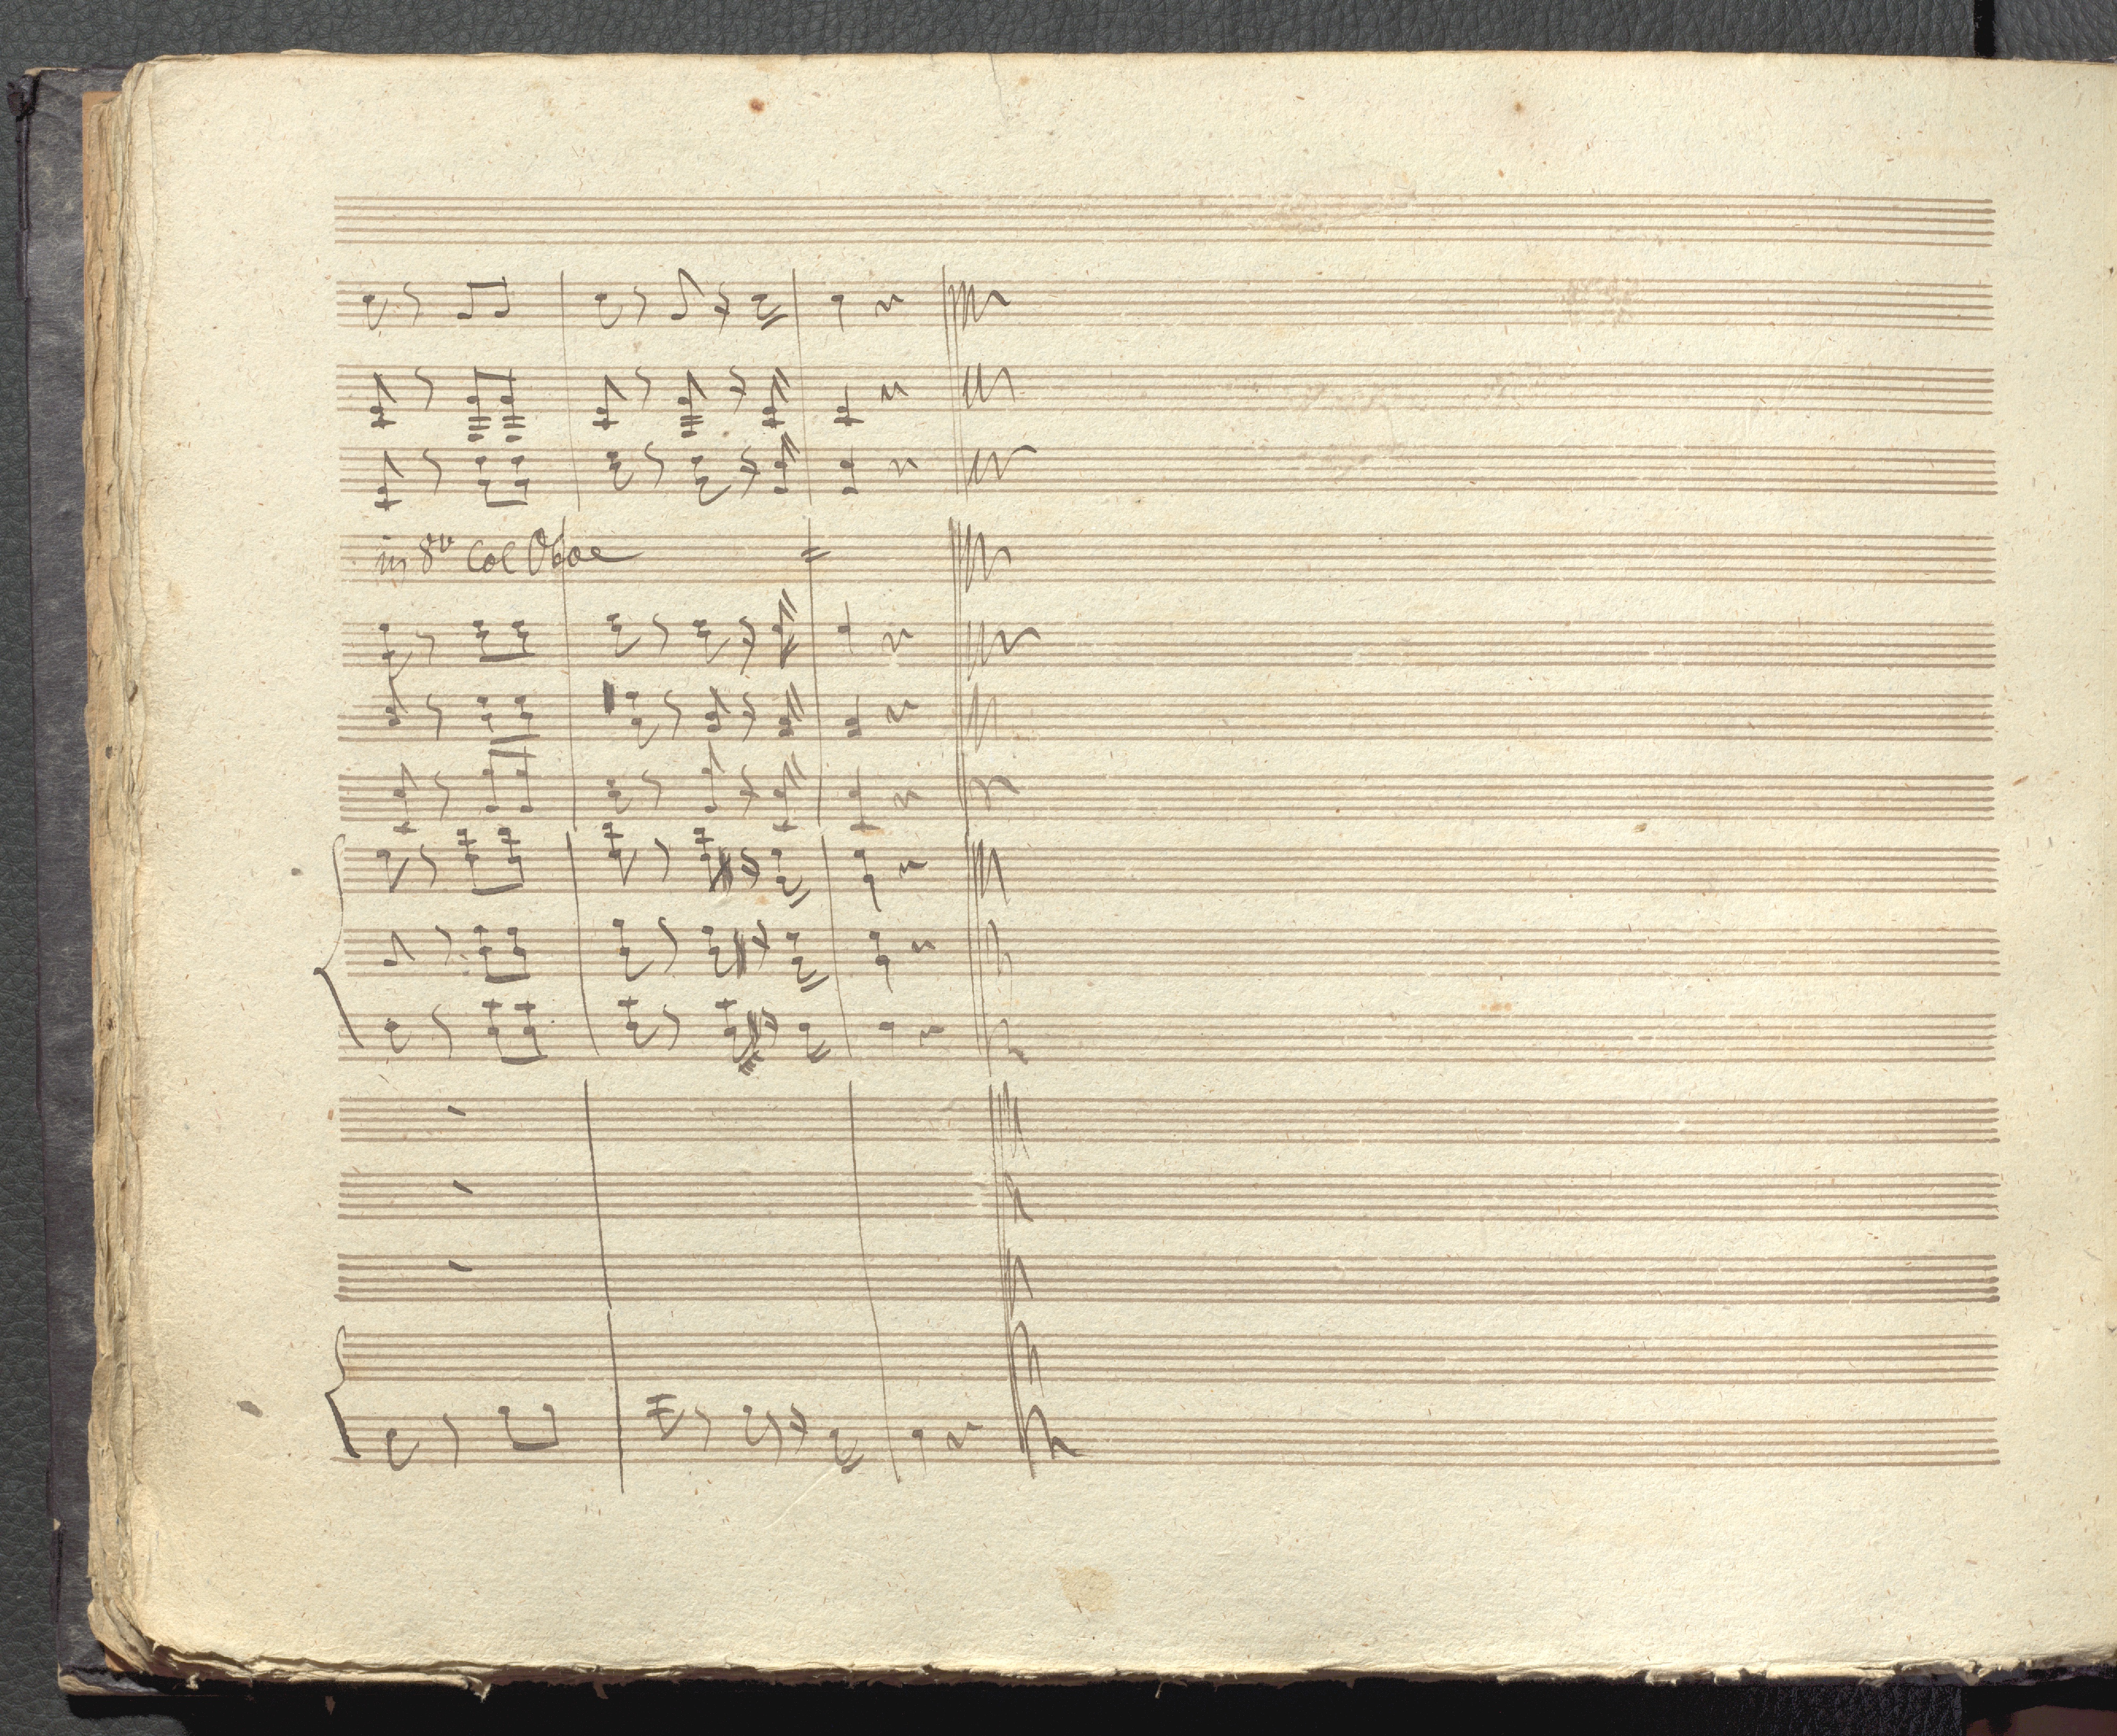 in 8va Col Oboe